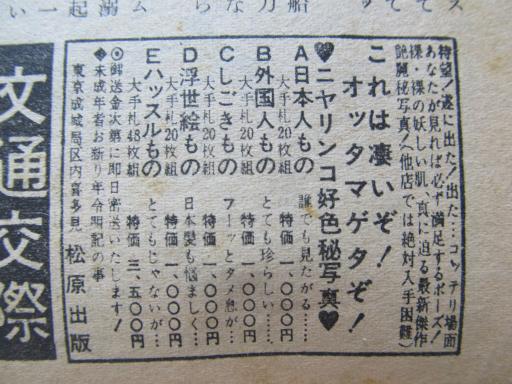 待望!遂に出た!出た…コッテリ場面
あなたが見れば必ず満足するポーズ!
裸・裸の妖しい肌、真に迫る最新傑作
艶麗秘写真(他店では絶対入手困難)
これは凄いぞ!
オッタマゲタぞ!
♥ニヤリンコ好色秘写真♥
A日本人もの 誰でも見たがる……
大手札20枚組 特価 一、〇〇〇円
B外国人もの とても珍らしい……
大手札20枚組 特価 一、〇〇〇円
Cしごきもの フーッとタメ息が…
大手札20枚組 特価 一、〇〇〇円
D浮世絵もの 日本髪も悩ましく…
大手札20枚組 特価 一、〇〇〇円
Eハッスルもの とてもじゃないが…
大手札48枚組 特価 三、五〇〇円
◎郵送金次第に即日密送いたします!
●未成年者お断り年令明記の事
東京成城局区内喜多見 松原出版
文通交際